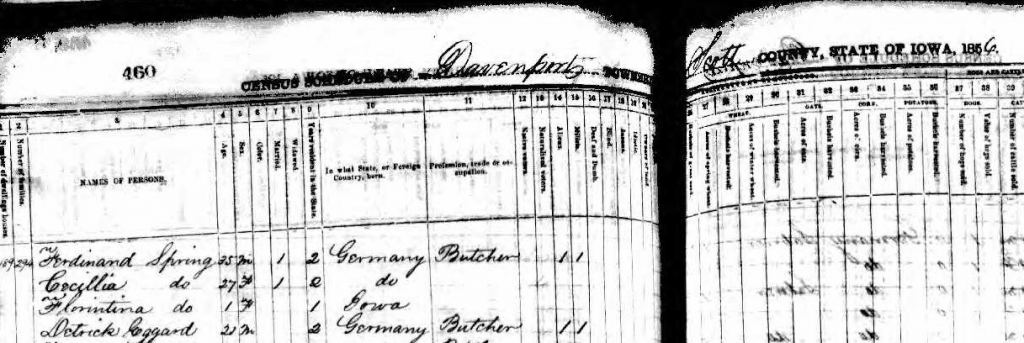 460
CENSUS SCHEDULE OF Davenport TOWNSHIP
Scott COUNTY, STATE OF IOWA, 1856.
HOGS AND CATTLE
1 2 3 4 5 6 7 8 9 10 11 12 13 14 15 16 17 18 19
27 28 29 30 31 32 33 34 35 36 37 38 39
WHEAT. OATS. CORN. POTATOES. HOGS.
Number of dwellings houses.
Number of families.
NAMES OF PERSONS.
Age.
Sex.
Color.
Married.
Widowed.
Years resident in the State.
In what State, or Foreign Country, born.
Profession, trade or occupation.
Native voters.
Naturalized voters.
Aliens.
Militia.
Deaf and Dumb.
Blind.
Insane.
Idiotic.
Acres of spring wheat.
Bushels harvested.
Acres of winter wheat.
Bushels harvested.
Acres of oats.
Bushels harvested.
Acres of corn.
Bushels harvested.
Acres of potatoes.
Bushels harvested.
Number of hogs sold.
Value of hogs sold.
Number of cattle sold.
294 Ferdinand Spring 35 m 1 2 Germany Butcher 1 1
Cecillia do 27 F 1 2 do
Florintina do 1 F 1 Iowa
Detrick Eggard 21 m 2 Germany Butcher 1 1